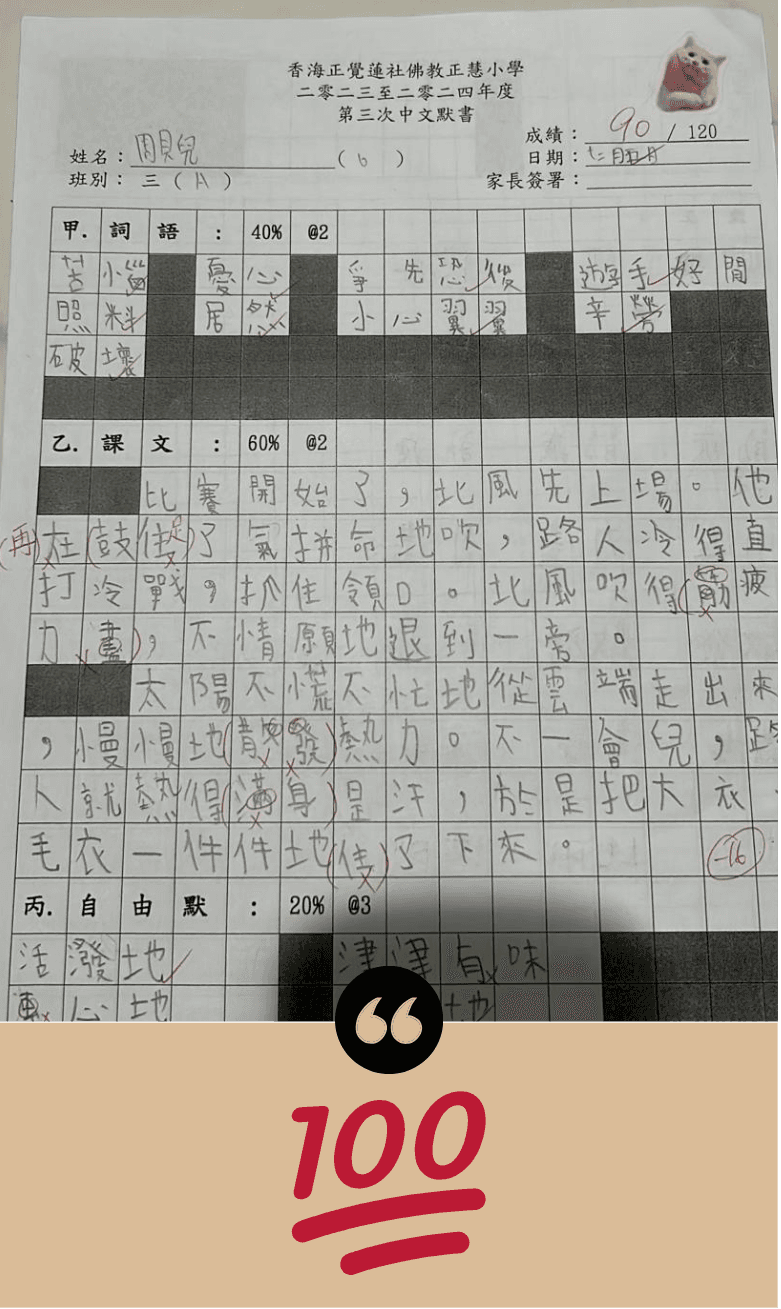 香海正覺蓮社佛教正慧小學
二零二三至二零二四年度
第三次中文默書
成績：90 / 120
姓名：周貝兒 (6)
日期：
班別：三 (A)
家長簽署：
甲. 詞語： 40% @2
苦惱 憂心 爭先恐後 遊手好閒
照料 居然 小心翼翼 辛勞
破壞
乙. 課文： 60% @2
比賽開始了，北風先上場。他
(再)在(鼓足)了氣拼命地吹，路人冷得直
打冷戰，抓住領口。北風吹得 疲
力盡)，不情願地退到一旁。
太陽不慌不忙地從雲端走出來
，慢慢地(散發)熱力。不一會兒，路
人就熱得(滿身)是汗，於是把大衣、
毛衣一件件地 了下來。
-16
丙. 自由默： 20% @3
活潑地 津津有味
心地 地
100